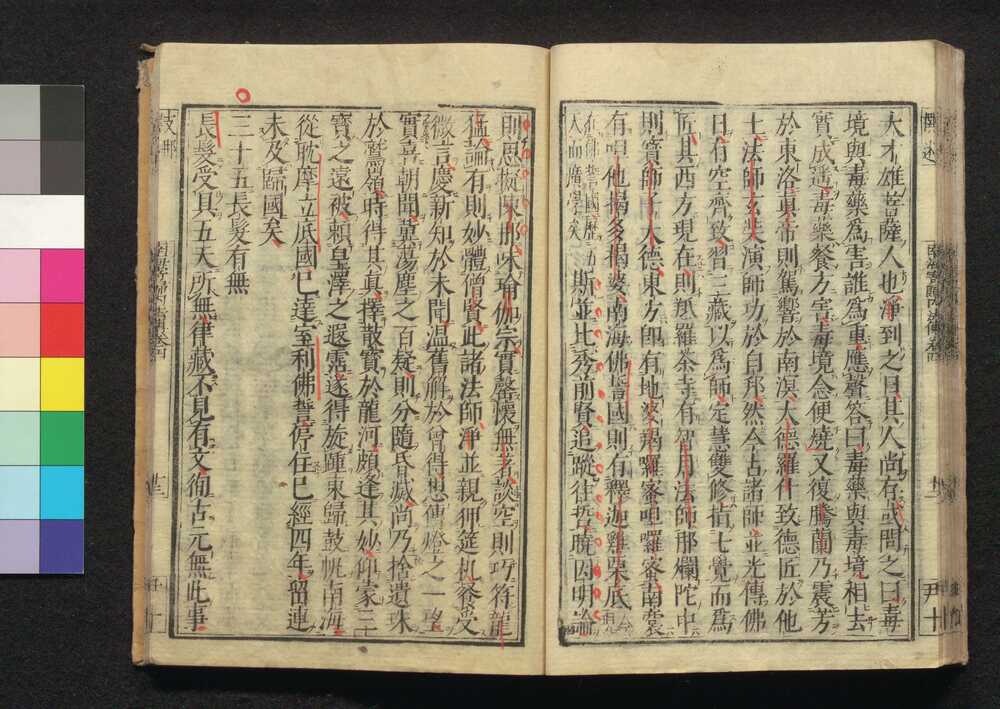 大才雄菩薩人也淨到之日其人尚存或問之曰毒
境與毒藥為害誰為重應聲答曰毒藥與毒境相去
實成遙毒藥餐方害毒境念便燒又復騰蘭乃震芳
於東洛真帝則駕響於南溟大德羅什致德匠於他
土法師玄奘演師功於自邦然今古諸師並光傳佛
日有空齊致習三藏以為師定慧雙修指七覺而為
匠其西方現在則羝羅荼寺有智月法師那爛陀中
則寶師子大德東方即有地婆羯囉蜜呾囉蜜南裔
有呾他揭多揭婆南海佛誓國則有釋迦雞栗底
斯並比秀前賢追蹤往哲曉因明論
則思擬陳那味瑜伽宗實罄懷無著談空則巧符龍
猛論有則妙體僧賢此諸法師淨並親狎筵机飡受
微言慶新知於未聞溫舊解於曾得想傳燈之一望
實喜朝聞冀蕩塵之百疑則分隨昏滅尚乃拾遺珠
於鷲嶺時得其真擇散寶於龍河頗逢其妙仰蒙三
寶之遠被賴皇澤之遐霑遂得旋踵東歸鼓帆南海
從耽摩立底國已達室利佛誓停住已經四年留連
未及歸國矣
三十五長髮有無
長髮受具五天所無律藏不見有文徇古元無此事
支那
尹十